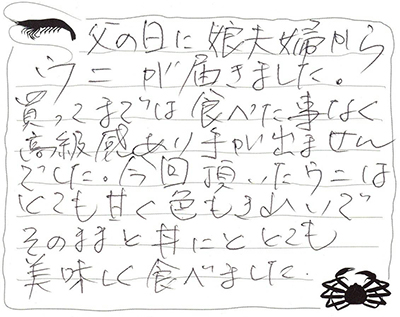 父の日に娘夫婦から
ウニが届きました。
買ってまでは食べた事なく
高級感あり手が出ません
でした。今回頂いたウニは
とても甘く色もきれいで
そのままと丼にととても
美味しく食べました.